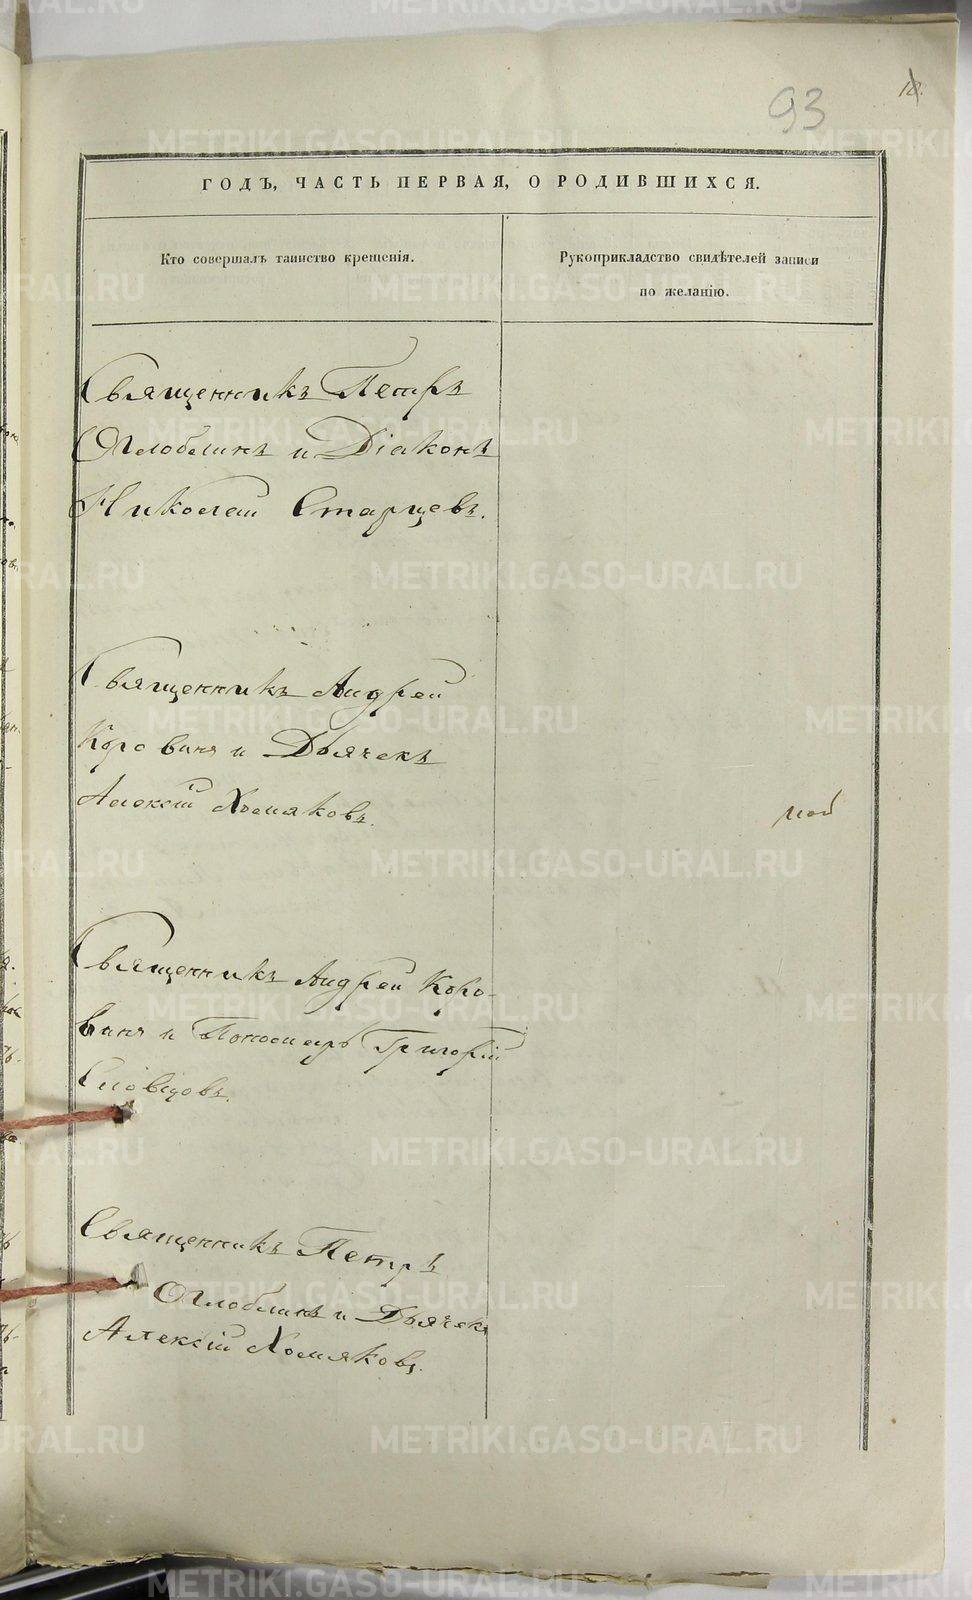 93
ГОДЪ, ЧАСТЬ ПЕРВАЯ, О РОДИВШИХСЯ.
Кто совершалъ таинство крещенія.
Рукоприкладство свидѣтелей записи
по желанію.
Священникъ Петръ
Оглоблинъ и Діаконъ
Николай Старцевъ.
Священникъ Андрей
Коровинъ и Дьячекъ
Алексій Хомяковъ.
Священникъ Андрей Коро-
винъ и Пономарь Григорій
Словцовъ.
Священникъ Петръ
Оглоблинъ и Дьячекъ
Алексій Хомяковъ.
METRIKI.GASO-URAL.RU